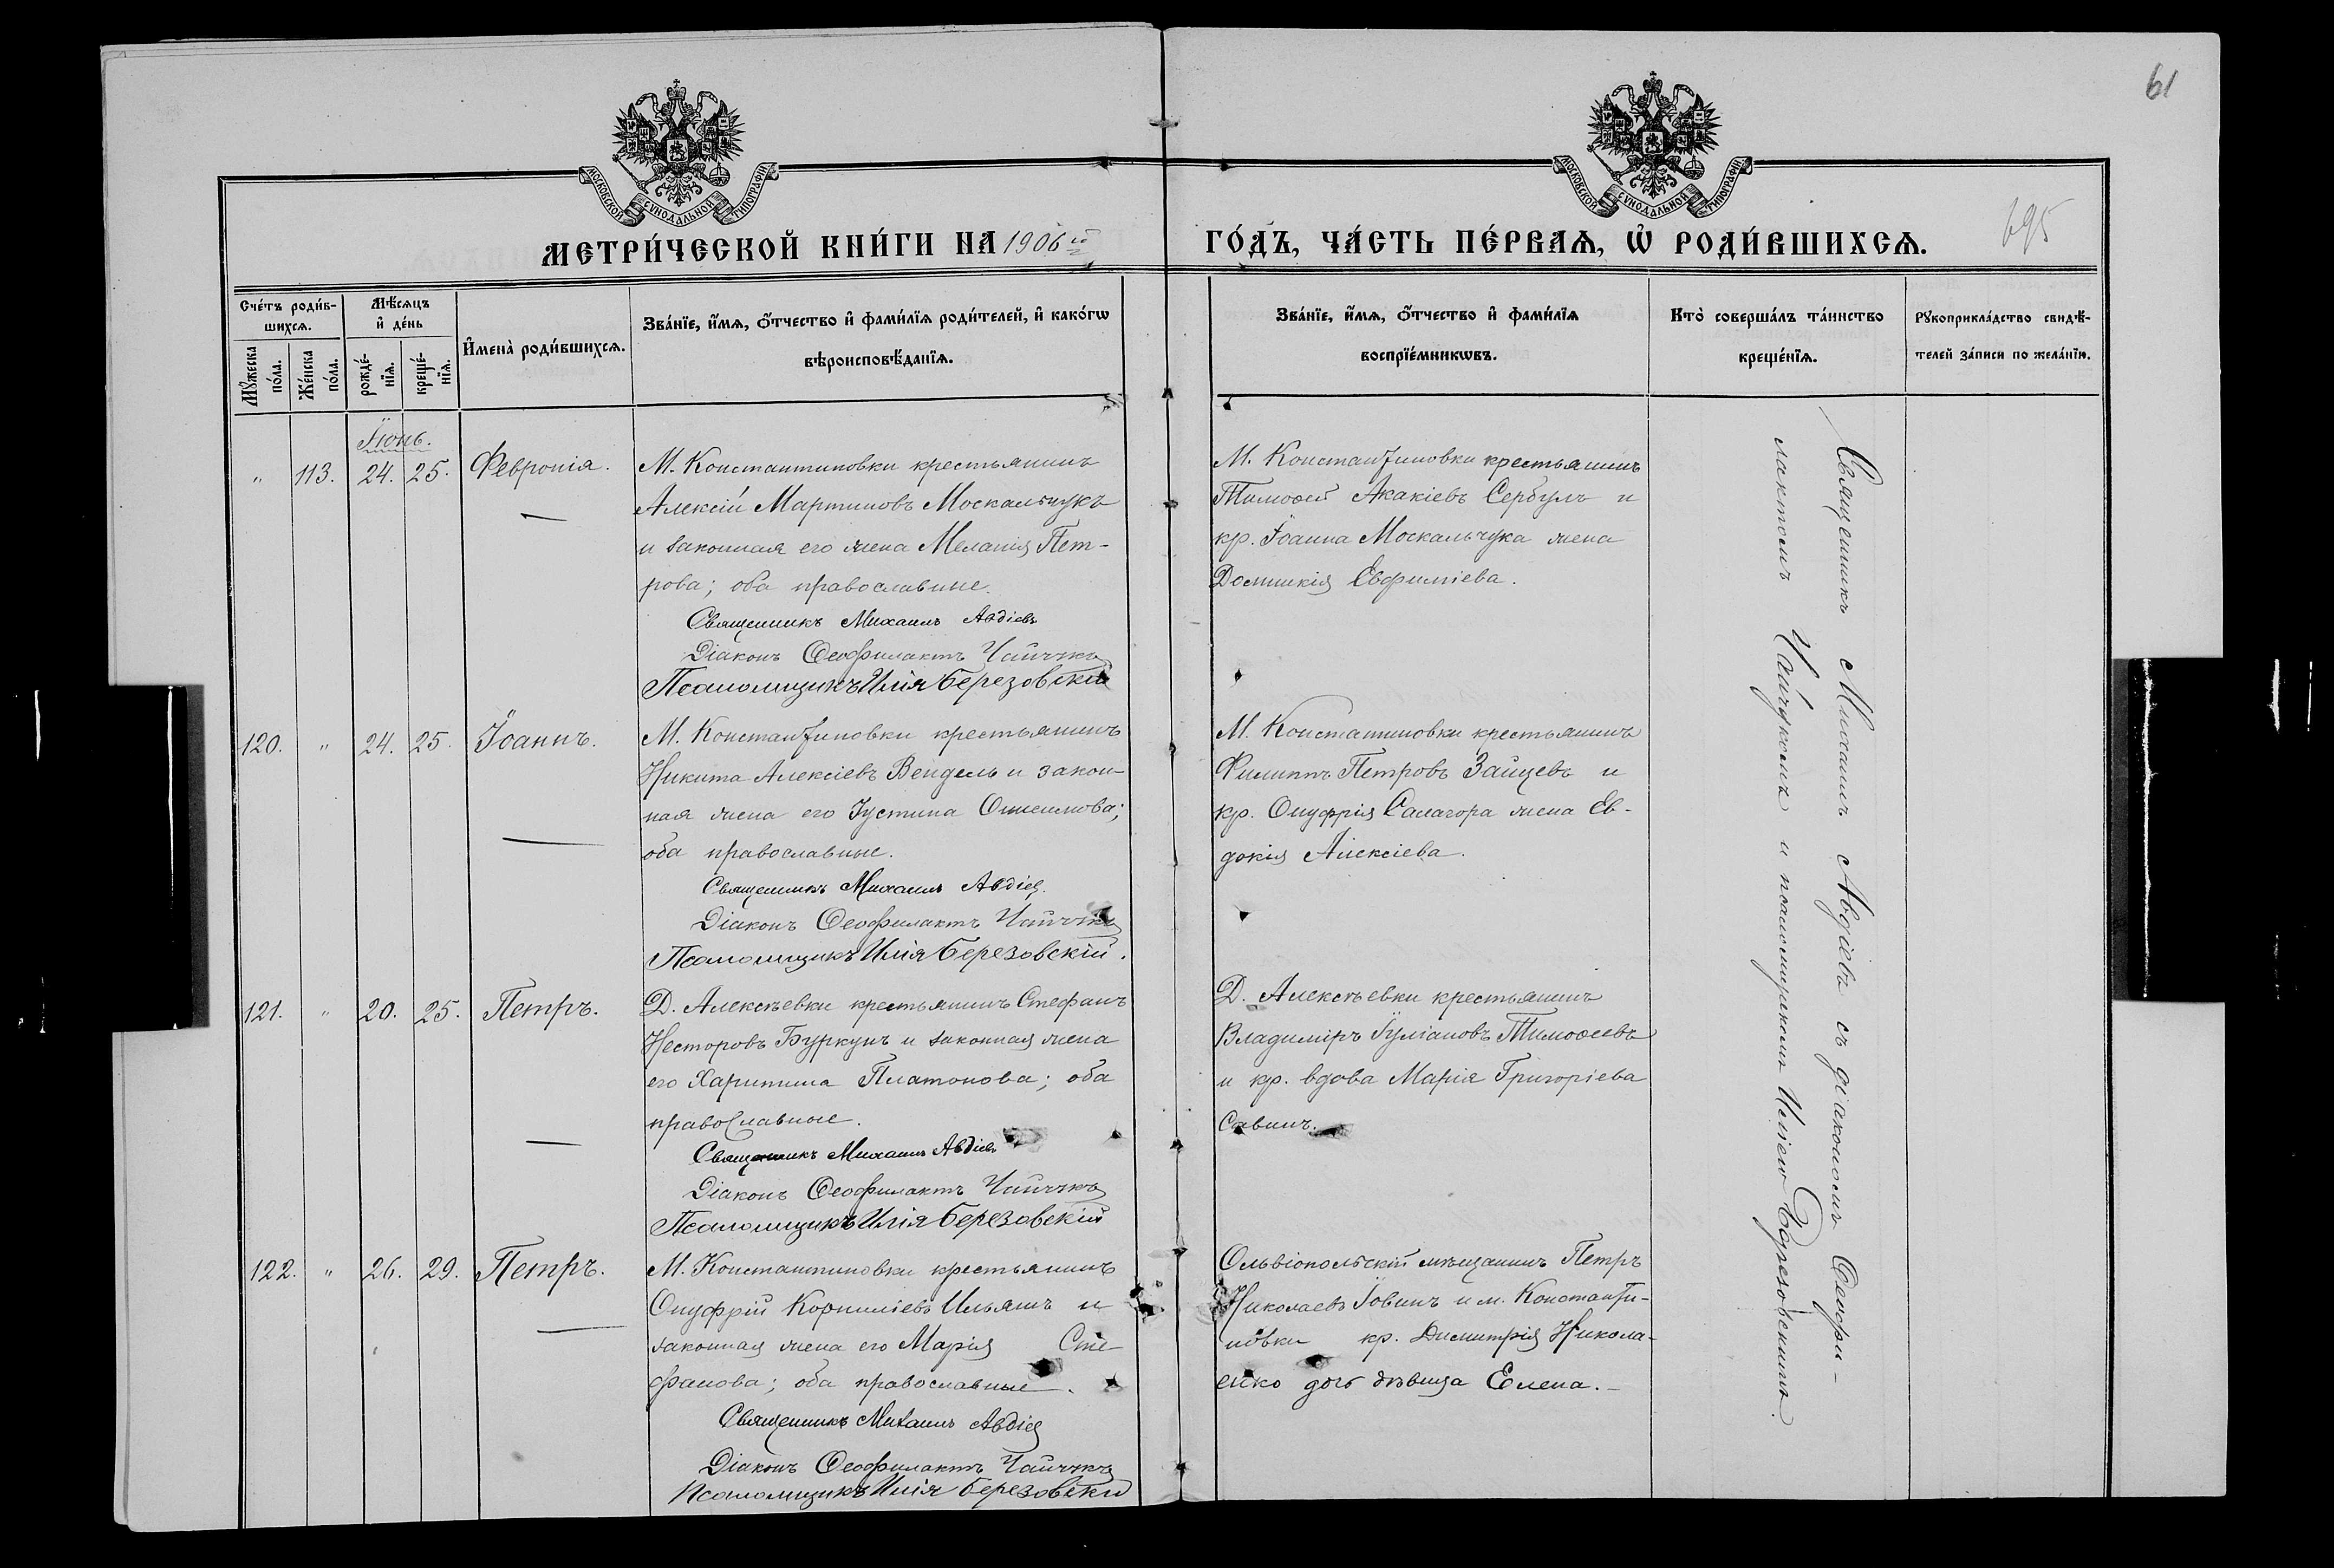 61
695
МОСКОВСКОЙ СѴНОДАЛЬНОЙ ТИПОГРАФІИ
МОСКОВСКОЙ СѴНОДАЛЬНОЙ ТИПОГРАФІИ
МЕТРИ́ЧЕСКОЙ КНИ́ГИ НА 1906 й
ГО́ДЪ, ЧА́СТЬ ПЕ́РВАѦ, Ѡ҆ РОДИ́ВШИХСѦ.
Сче́тъ роди́в-
шихсѧ.
Мѣ́сѧцъ
и҆ де́нь
Мꙋ́жеска
по́ла.
Же́нска
по́ла.
рожде́-
нїѧ.
креще́-
нїѧ.
И҆мена̀ роди́вшихсѧ.
Зва́нїе, и҆́мѧ, ѻ҆́тчество и҆ фами́лїѧ роди́телей, и҆ како́гѡ
вѣроисповѣ́данїѧ.
Зва́нїе, и҆́мѧ, ѻ҆́тчество и҆ фами́лїѧ
воспрїе́мникѡвъ.
Кто̀ соверша́лъ та́инство
креще́нїѧ.
Рꙋкоприкла́дство свидѣ́-
телей за́писи по жела́нїю.
Іюнь.
" 113. 24. 25. Февронія.
М. Константиновки крестьянинъ
Алексій Мартиновъ Москальчукъ
и законная его жена Меланія Пет-
рова; оба православные.
Священникъ Михаилъ Авдіевъ
Діаконъ Ѳеофилактъ Чайчукъ
Псаломщикъ Илія Березовскій
М. Константиновки крестьянинъ
Тимоѳей Акакіевъ Сербулъ и
кр. Іоанна Москальчука жена
Домникія Евфиміева.
120. " 24. 25. Іоаннъ.
М. Константиновки крестьянинъ
Никита Алексіевъ Вендель и закон-
ная жена его Іустина
оба православные.
Священникъ Михаилъ Авдіев
Діаконъ Ѳеофилактъ Чайчукъ
Псаломщикъ Илія Березовскій.
М. Константиновки крестьянинъ
Филиппъ Петровъ Зайцевъ и
кр. Онуфрія Салагора жена Ев-
докія Алексіева.
121. " 20. 25. Петръ.
Д. Алексѣевки крестьянинъ Стефанъ
Несторовъ Буркунъ и законная жена
его Харитина Платонова; оба
православные.
Священникъ Михаилъ Авдіевъ
Діаконъ Ѳеофилактъ Чайчукъ
Псаломщикъ Илія Березовскій
Д. Алексѣевки крестьянинъ
Владиміръ Іуліановъ Тимоѳеевъ
и кр. вдова Марія Григоріева
Савинъ.
122. " 26. 29. Петръ.
М. Константиновки крестьянинъ
Онуфрій Корниліевъ Ильяшъ и
законная жена его Марія Сте-
фанова; оба православные.
Священникъ Михаилъ Авдіев
Діаконъ Ѳеофилактъ Чайчукъ
Псаломщикъ Илія Березовскій
Ольвіопольскій мѣщанинъ Петръ
Николаевъ Іовинъ и м. Константи-
новки кр. Димитрія Никола-
енко дочь дѣвица Елена.
Священникъ Михаилъ Авдіевъ съ діакономъ Ѳеофи-
лактомъ Чайчукомъ и псаломщикомъ Иліею Березовскимъ.